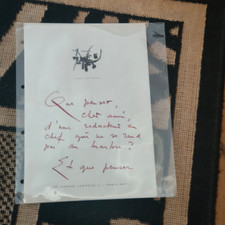 Que penser,
cher ami,
d'un rédacteur en
chef qui ne se rend
pas au marbre?
Et que penser